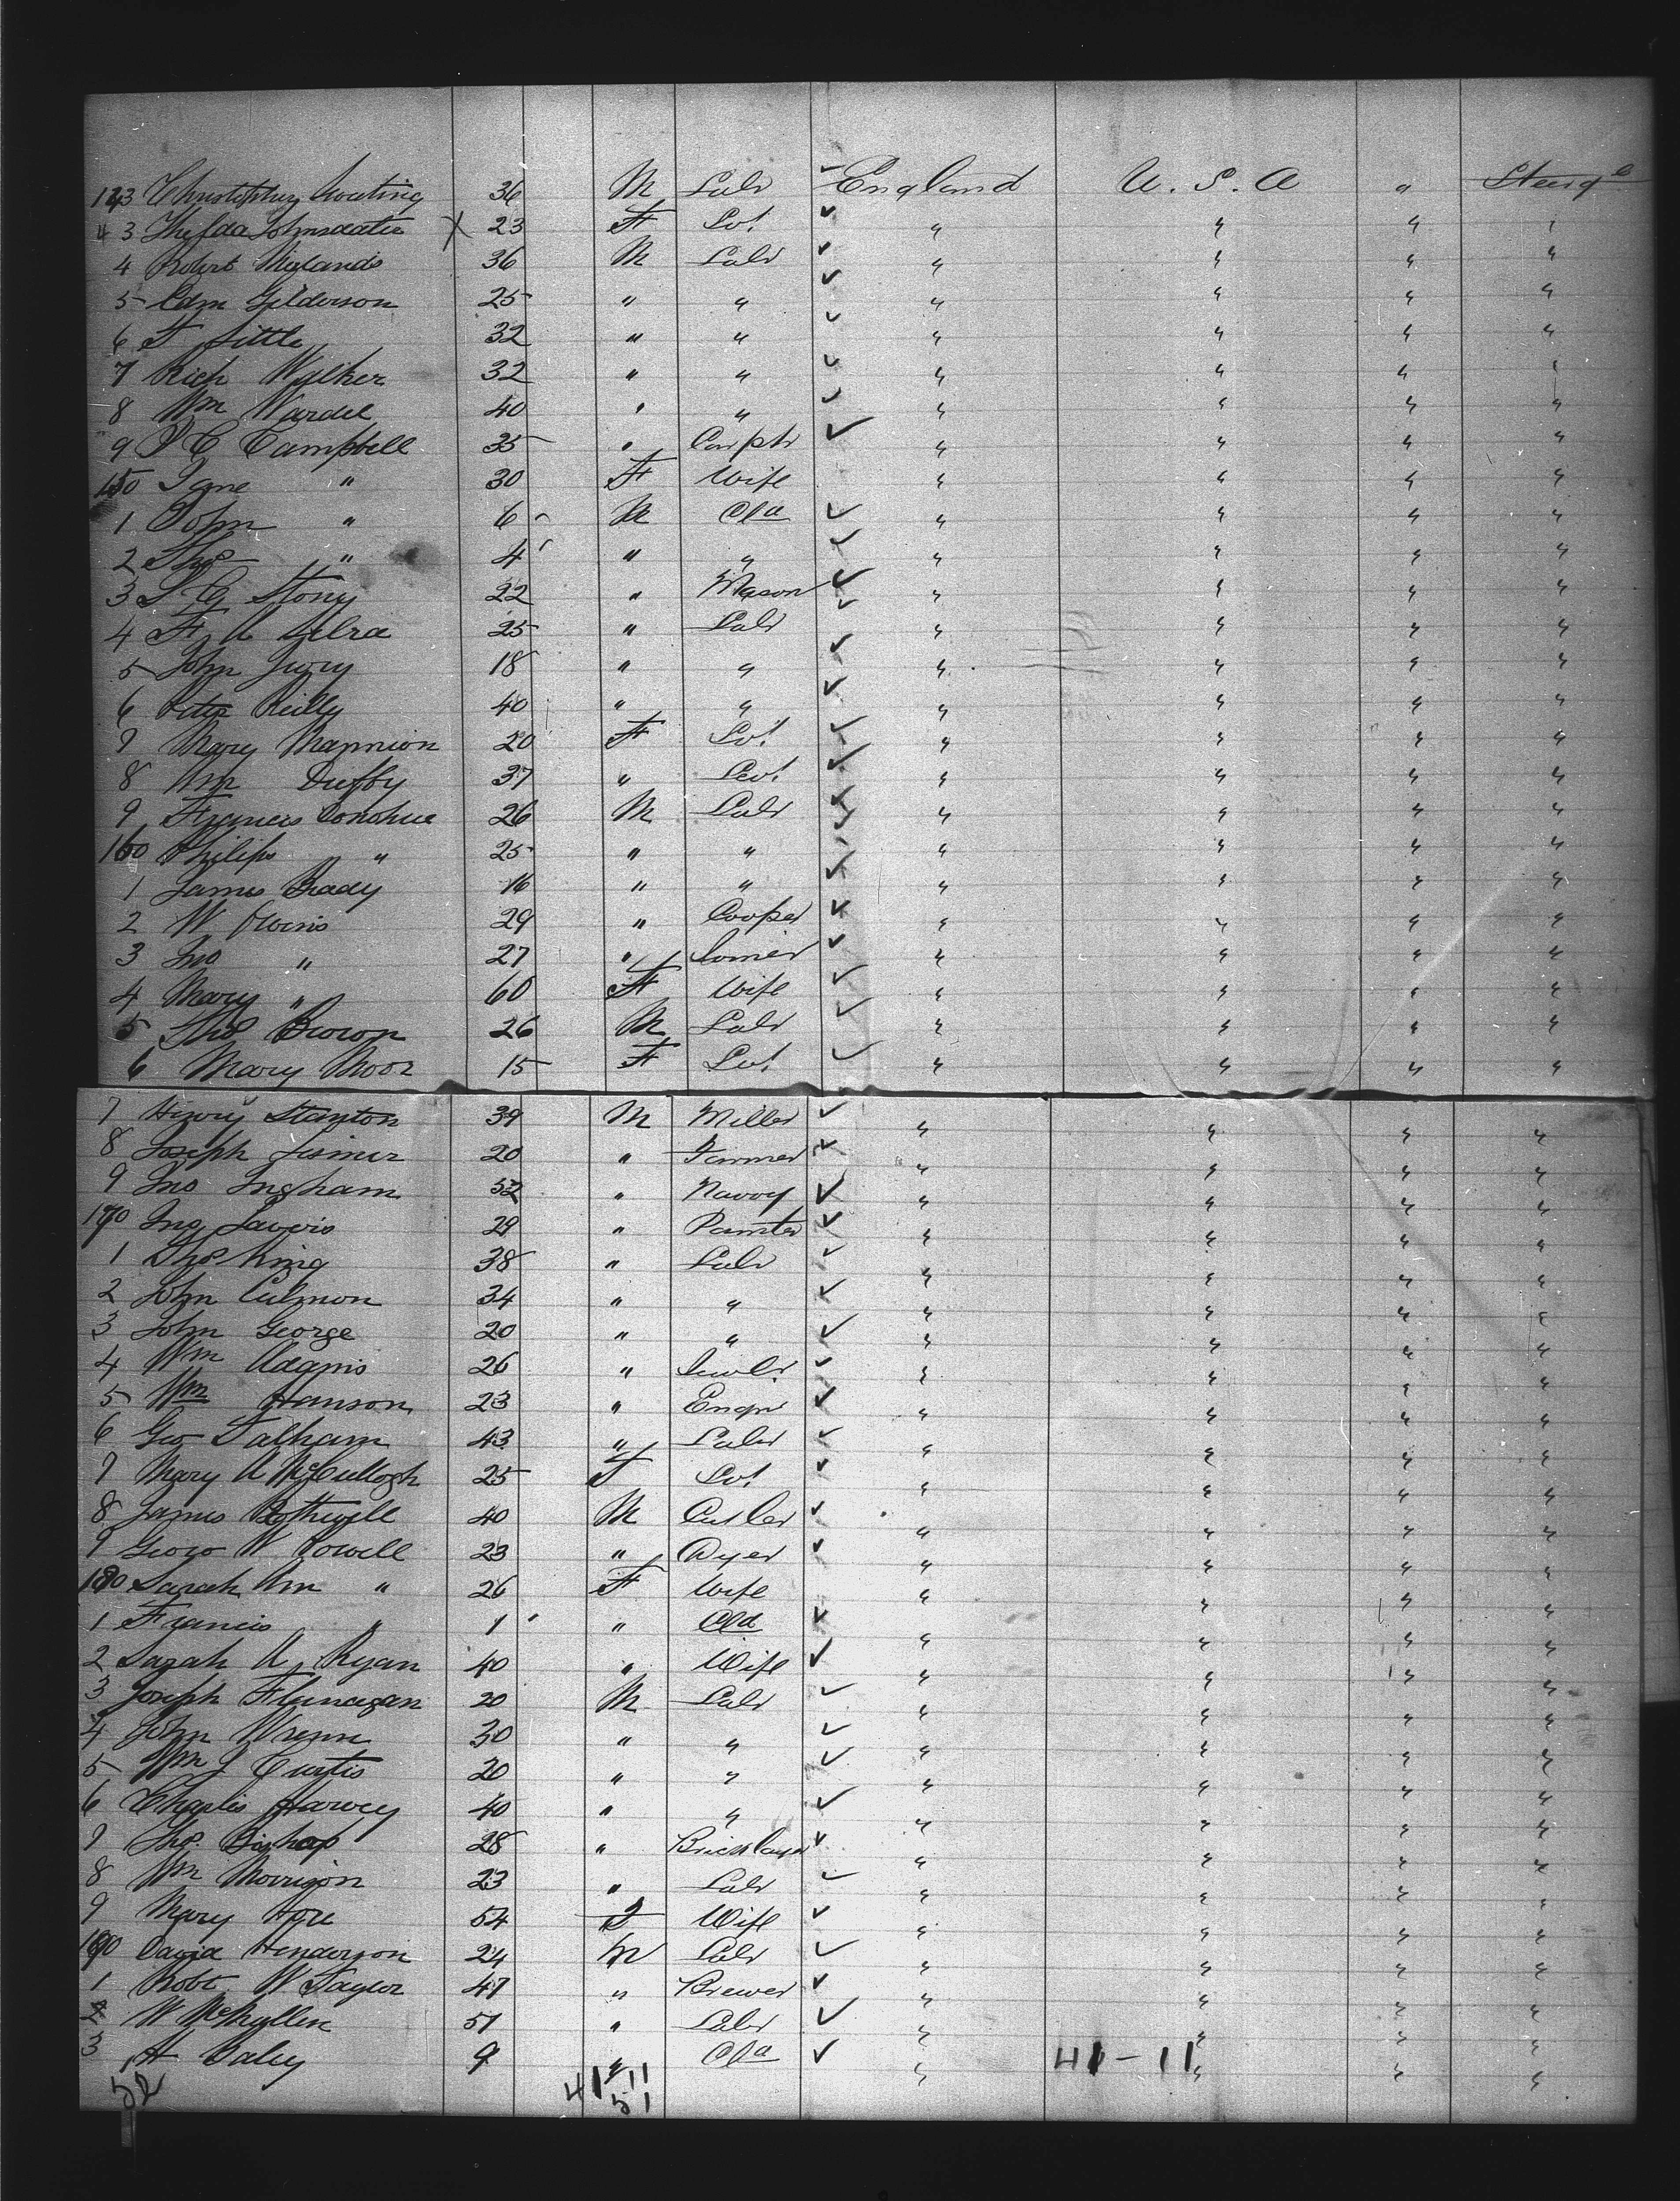 143 Christopher 36 M Labr ✓ England U. S. A " Steerge
3 Johnsdatter X 23 F Svt ✓ " " " "
4 Robert Mylands 36 M Labr ✓ " " " "
5 Edm Gilderson 25 " " ✓ " " " "
6 F Little 32 " " ✓ " " " "
7 Rich Walker 32 " " ✓ " " " "
8 Wm Wardel 40 " " ✓ " " " "
9 J C Campbell 35 " Carptr ✓ " " " "
150 Jane " 30 F Wife " " " "
1 John " 6 M Cld ✓ " " " "
2 Thos " 4 " " ✓ " " " "
3 S C Stony 22 " Mason ✓ " " " "
4 F A 25 " Labr ✓ " " " "
5 John Jvory 18 " " ✓ " " " "
6 Peter Reilly 40 " " ✓ " " " "
7 Mary Mannion 20 F Svt ✓ " " " "
8 Wm Duffy 37 " Svt ✓ " " " "
9 Francis Donohue 26 M Labr ✓ " " " "
160 Philips " 25 " " ✓ " " " "
1 James Brady 16 " " ✓ " " " "
2 W Owins 29 " Cooper ✓ " " " "
3 Jno " 27 " Joiner ✓ " " " "
4 Mary " 60 F Wife ✓ " " " "
5 Thos Brown 26 M Labr ✓ " " " "
6 Mary Moor 15 F Svt ✓ " " " "
7 Henry Stanton 39 M Miller ✓ " " " "
8 Joseph 20 " Farmer ✓ " " " "
9 Jno Ingham 52 " Navvy ✓ " " " "
170 Jno Lawis 29 " Painter ✓ " " " "
1 Thos King 38 " Labr ✓ " " " "
2 John Culmon 34 " " ✓ " " " "
3 John George 20 " " ✓ " " " "
4 Wm Adams 26 " Jewlr ✓ " " " "
5 Wm Hanson 23 " Engnr ✓ " " " "
6 Geo Talham 43 " Labr ✓ " " " "
7 Mary A McCullogh 25 F Svt ✓ " " " "
8 James Rothwell 40 M Cutler ✓ " " " "
9 George W Powell 23 " Dyer ✓ " " " "
180 Sarah Ann " 26 F Wife " " " "
1 Francis " 1 " Cld ✓ " " " "
2 Sarah A Ryan 40 " Wife ✓ " " " "
3 Joseph Flanagan 20 M Labr ✓ " " " "
4 John Wrenn 30 " " ✓ " " " "
5 Wm J Curtis 20 " " ✓ " " " "
6 Charles Harvey 40 " " ✓ " " " "
7 Thos. Bishop 28 " Bricklayer ✓ " " " "
8 Wm Morrison 23 " Labr ✓ " " " "
9 Mary Hore 54 F Wife ✓ " " " "
190 David Henderson 24 M Labr ✓ " " " "
1 Robt W Taylor 47 " Brewer ✓ " " " "
2 W McMullen 51 " Labr ✓ " " " "
3 H Daley 9 " Cld ✓ " " " "
52 41 11 41-11
51